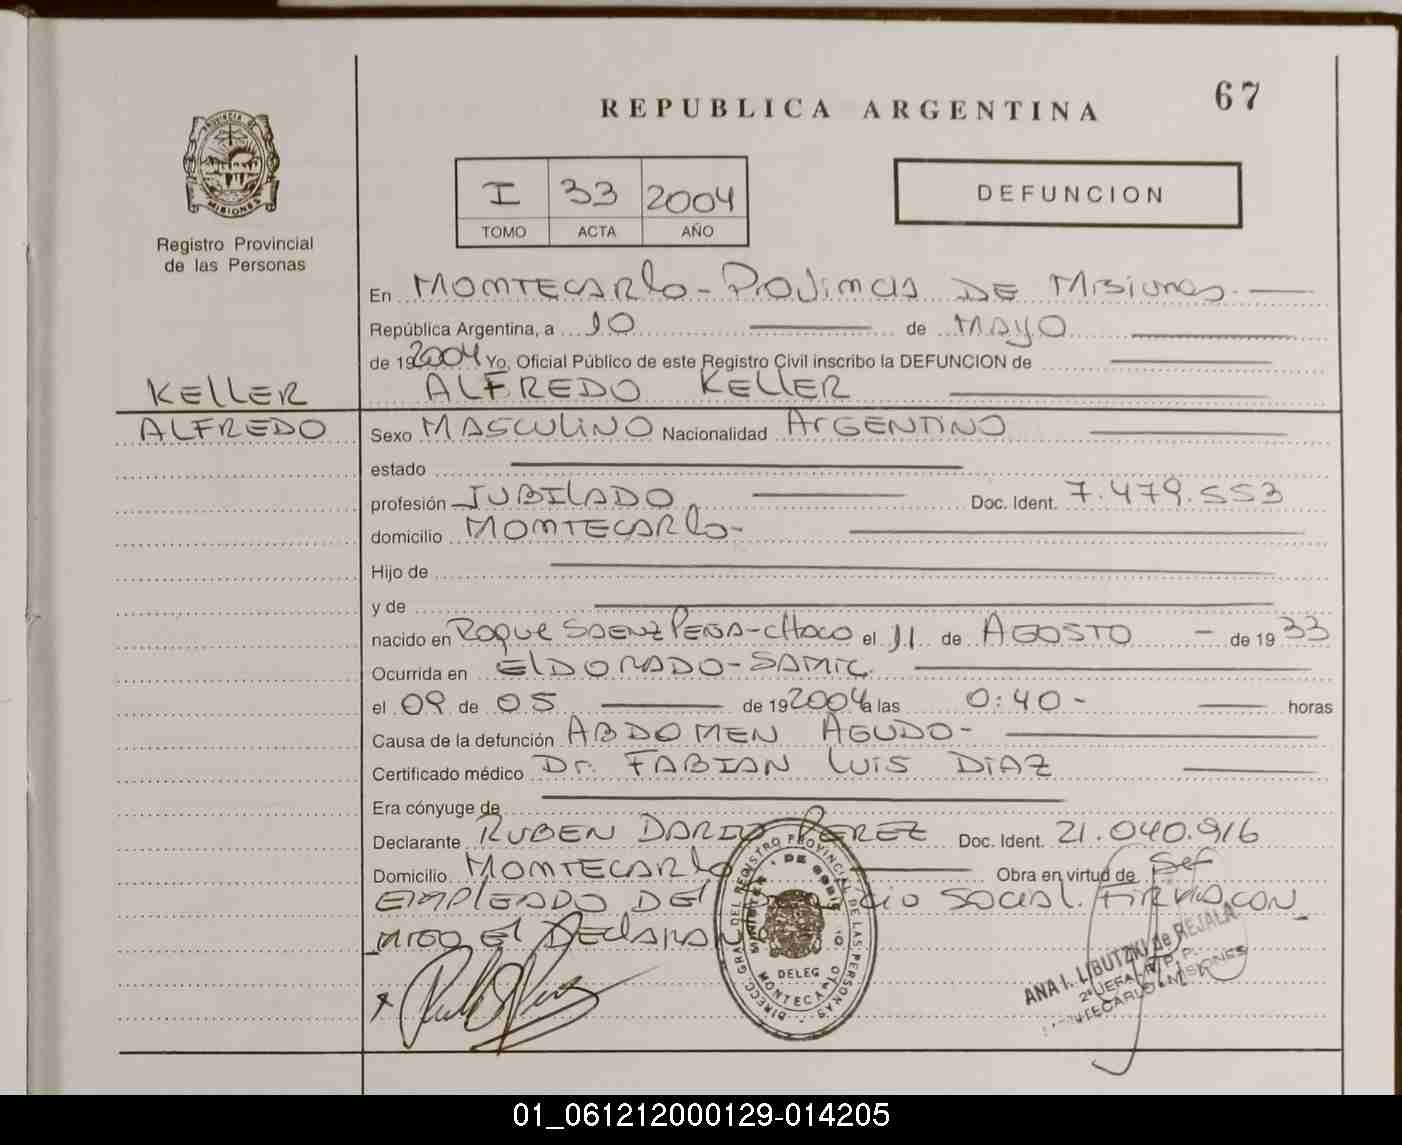 67
REPUBLICA ARGENTINA
PROVINCIA DE
MISIONES
Registro Provincial
de las Personas
I 33 2004
TOMO ACTA AÑO
DEFUNCION
En MONTECARlo - Provincia DE Misiones.
República Argentina, a 10 de MAYO
de 19 2004 Yo, Oficial Público de este Registro Civil inscribo la DEFUNCION de
KEllER ALFREDO KEllER
ALFREDO Sexo MASCULINO Nacionalidad ArGENTINO
estado
profesión JUBILADO Doc. Ident. 7.479.553
domicilio MONTECARlo-
Hijo de
y de
nacido en Roque SAENZ PEÑA-CHACO el 11 de AGOSTO - de 19 33
Ocurrida en ElDORADO-SAMIC.
el 09 de 05 de 19 2004 a las 0:40- horas
Causa de la defunción ABDOMEN AGUDO-
Certificado médico Dr. FABIAN LUIS DIAZ
Era cónyuge de
Declarante RUBEN DARIO PEREZ Doc. Ident. 21.040.916
Domicilio MONTECARlo Obra en virtud de Ser
EMPLEADO DEl SOCIAL. FIRMA CON
MIGO El DEClARAN
DIRECC. GRAL. DEL REGISTRO PROVINCIAL DE LAS PERSONAS
DELEG
MONTECARLO
ANA I. LIBUTZKI de REJALA
MONTECARLO - MISIONES
01_061212000129-014205